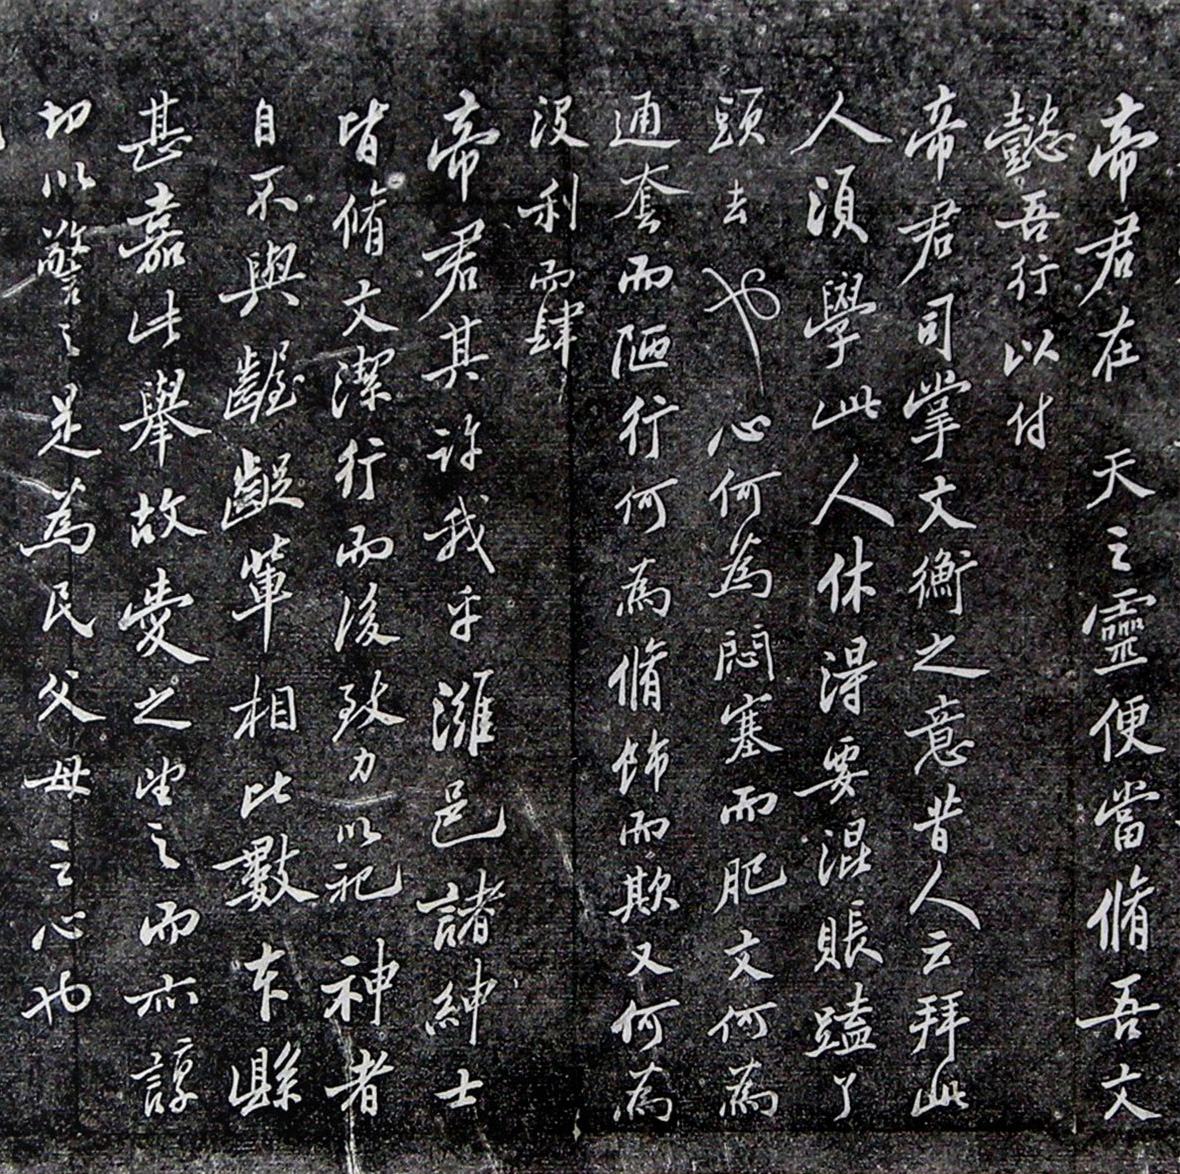 帝君在天之靈便當脩吾文
懿吾行以付
帝君司掌文衡之意昔人云拜此
人須學此人休得要混賬磕了
頭去也心何為悶塞而肥文何為
通套而陋行何為脩飾而欺又何為
沒利而肆
帝君其許我乎濰邑諸紳士
皆脩文潔行而後致力以祀神者
自不與齷齪輩相比數本縣
甚嘉此舉故愛之望之而亦諄
切以警之是為民父母之心也